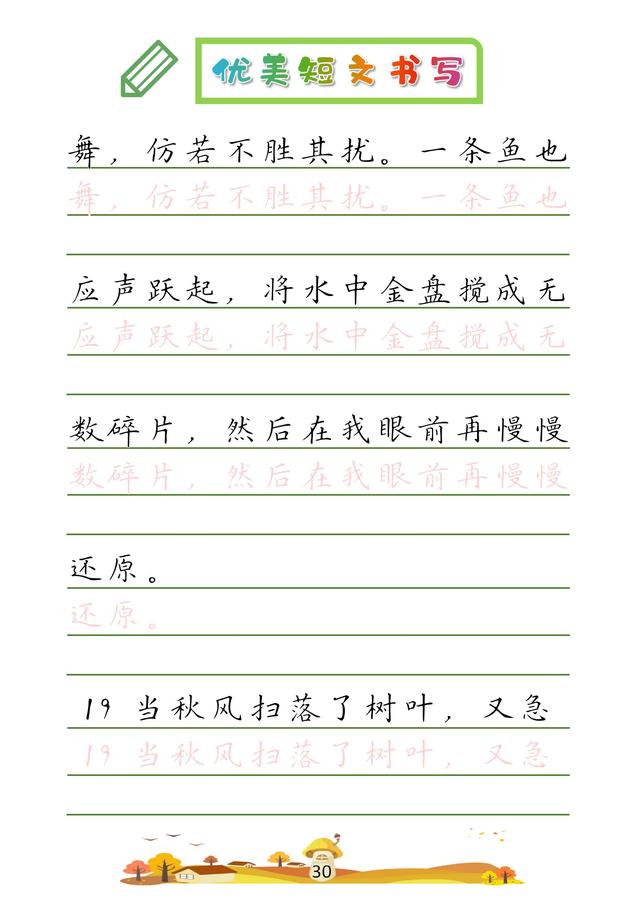 优美短文书写
舞，仿若不胜其扰。一条鱼也
舞，仿若不胜其扰。一条鱼也
应声跃起，将水中金盘搅成无
应声跃起，将水中金盘搅成无
数碎片，然后在我眼前再慢慢
数碎片，然后在我眼前再慢慢
还原。
还原。
19 当秋风扫落了树叶，又急
19 当秋风扫落了树叶，又急
30